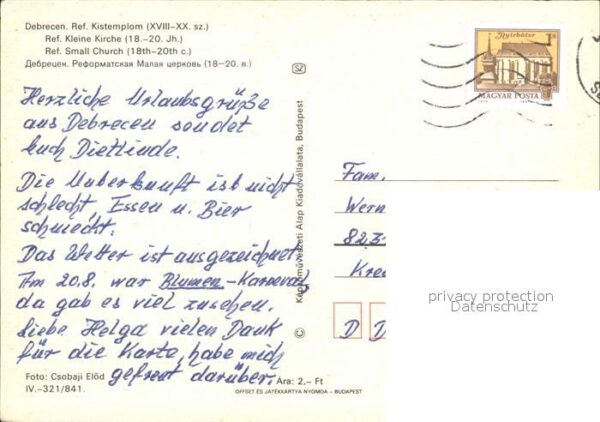 Debrecen. Ref. Kistemplom (XVIII–XX. sz.)
Ref. Kleine Kirche (18.–20. Jh.)
Ref. Small Church (18th–20th c.)
Дебрецен. Реформатская Малая церковь (18–20. в.)
Herzliche Urlaubsgrüße
aus Debrecen sendet
Euch Dietlinde.
Die Unterkunft ist nicht
schlecht, Essen u. Bier
schmeckt.
Das Wetter ist ausgezeichnet.
Am 20.8. war Blumen-Karneval,
da gab es viel zusehen.
Liebe Helga vielen Dank
für die Karte, habe mich
gefreut darüber.
Foto: Csobaji Előd
IV.–321/841.
Ára: 2,– Ft
OFFSET ÉS JÁTÉKKÁRTYA NYOMDA – BUDAPEST
SZ
© Képzőművészeti Alap Kiadóvállalata, Budapest
Nyírbátor
MAGYAR POSTA
Fam.
Wern
823
Kre
D D
privacy protection
Datenschutz